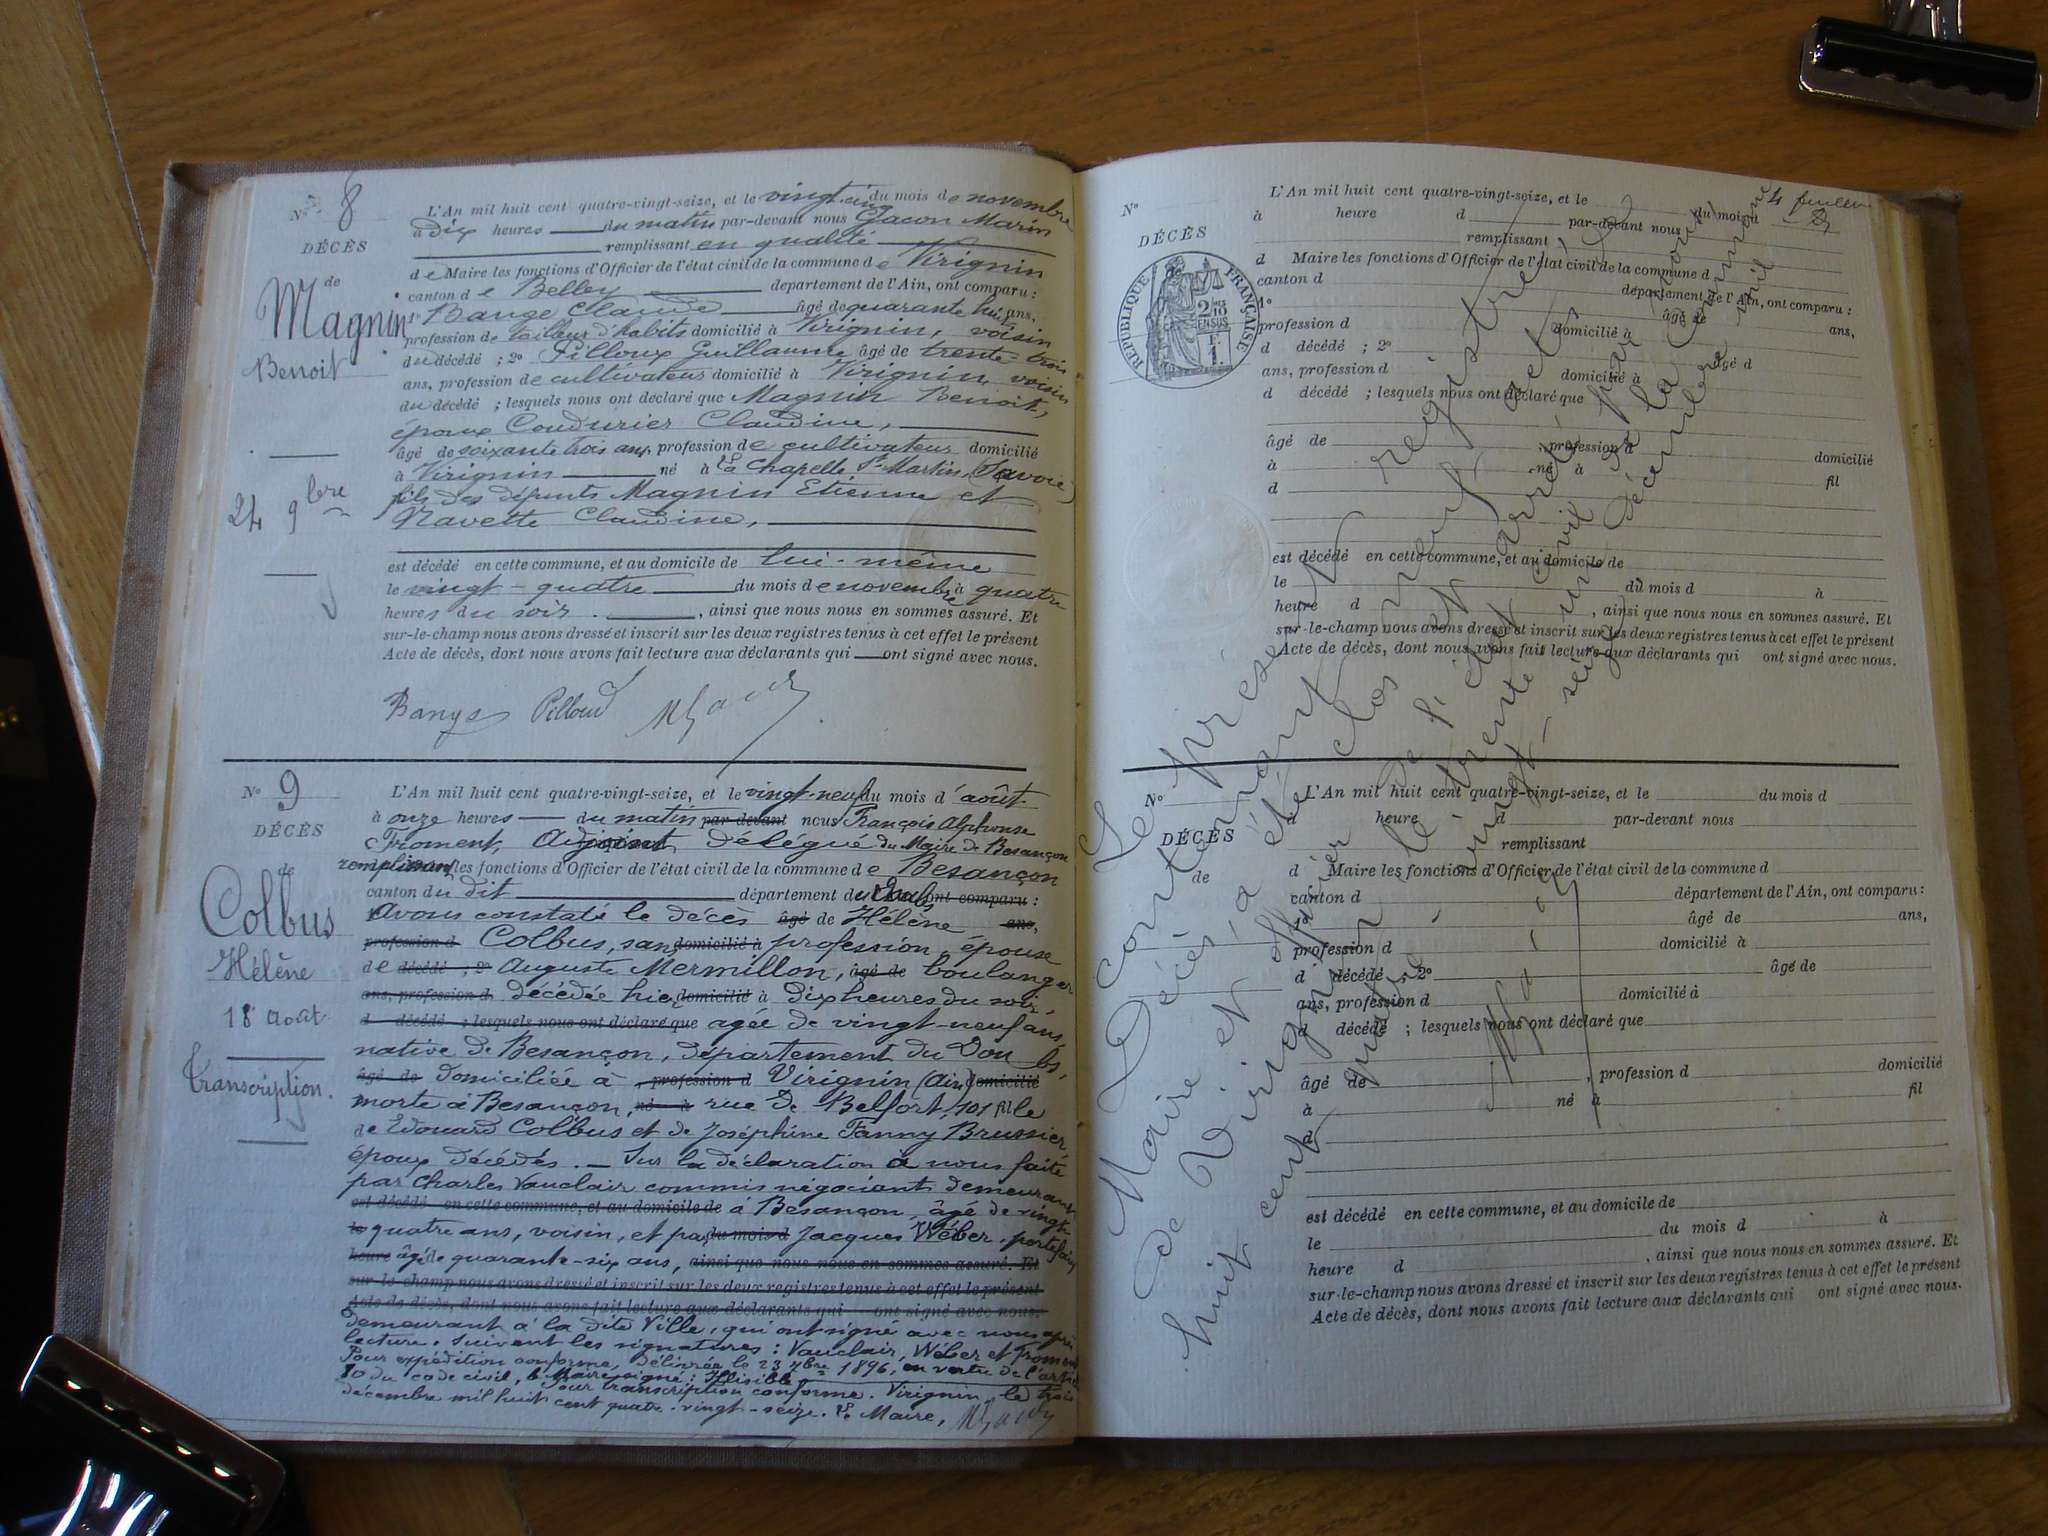 N° 8
DÉCÈS
de
Magnin
Benoit
24 9bre
L'An mil huit cent quatre-vingt-seize, et le vingt-cinq du mois de novembre
à dix heures du matin par-devant nous Gacon Marin
remplissant en qualité
de Maire les fonctions d'Officier de l'état civil de la commune de Virignin
canton de Belley département de l'Ain, ont comparu :
1° Bange Claude âgé de quarante huit ans,
profession de tailleur d'habits domicilié à Virignin, voisin
du décédé ; 2° Pilloux Guillaume âgé de trente-trois
ans, profession de cultivateur domicilié à Virignin, voisin
du décédé ; lesquels nous ont déclaré que Magnin Benoit,
époux Coudurier Claudine,
âgé de soixante trois ans, profession de cultivateur domicilié
à Virignin né à La Chapelle St Martin, (Savoie)
fils des défunts Magnin Etienne et
Navette Claudine,
est décédé en cette commune, et au domicile de lui-même
le vingt-quatre du mois de novembre à quatre
heures du soir, ainsi que nous nous en sommes assuré. Et
sur-le-champ nous avons dressé et inscrit sur les deux registres tenus à cet effet le présent
Acte de décès, dont nous avons fait lecture aux déclarants qui ont signé avec nous.
N° 9
DÉCÈS
de
Colbus
Hélène
18 Août
Transcription.
L'An mil huit cent quatre-vingt-seize, et le vingt-neuf du mois d'août
à onze heures du matin par-devant nous François Alphonse
Froment, Adjoint Délégué du Maire de Besançon
remplissant les fonctions d'Officier de l'état civil de la commune de Besançon
canton du dit département du Doubs ont comparu :
avons constaté le décès âgé de Hélène ans,
profession d Colbus, sans domicilié à profession, épouse
de décédé ; 2° Auguste Mermillon, âgé de boulanger
ans, profession d décédée hier domicilié à dix heures du soir,
d décédé ; lesquels nous ont déclaré que agée de vingt-neuf ans,
native de Besançon, département du Doubs,
âgé de domiciliée à profession d Virignin (Ain) domicilié
morte à Besançon, né à rue de Belfort, 101 fille
de Edouard Colbus et de Joséphine Fanny Brussier,
époux décédés. — Sur la déclaration à nous faite
par Charles Vauclair commis négociant demeurant
est décédé en cette commune, et au domicile de à Besançon, âgé de vingt
le quatre ans, voisin, et par du mois d Jacques Wéber, portefaix
heure âgé de quarante-six ans, ainsi que nous nous en sommes assuré. Et
sur-le-champ nous avons dressé et inscrit sur les deux registres tenus à cet effet le présent
Acte de décès, dont nous avons fait lecture aux déclarants qui ont signé avec nous.
demeurant à la dite Ville, qui ont signé avec nous après
lecture. Suivent les signatures : Vauclair, Wéber et Froment
Pour expédition conforme, délivrée le 23 9bre 1896, en vertu de l'article
80 du code civil, le Maire signé : Illisible
Pour transcription conforme. Virignin, le trois
décembre mil huit cent quatre-vingt-seize. Le Maire,
N°
DÉCÈS
RÉPUBLIQUE FRANÇAISE
L'An mil huit cent quatre-vingt-seize, et le du mois d
à heure d par-devant nous
remplissant
d Maire les fonctions d'Officier de l'état civil de la commune d
canton d département de l'Ain, ont comparu :
1° âgé de ans,
profession d domicilié à
d décédé ; 2° âgé d
ans, profession d domicilié à
d décédé ; lesquels nous ont déclaré que
âgé de profession d domicilié
à né à
d fil
est décédé en cette commune, et au domicile de
le du mois d à
heure d , ainsi que nous nous en sommes assuré. Et
sur-le-champ nous avons dressé et inscrit sur les deux registres tenus à cet effet le présent
Acte de décès, dont nous avons fait lecture aux déclarants qui ont signé avec nous.
Le présent registre
contenant neuf actes
Décès, a été clos et arrêté par nous
Maire et officier de l'état civil de la commune
de Virignin le trente un décembre mil
huit cent quatre vingt-seize
N°
DÉCÈS
de
L'An mil huit cent quatre-vingt-seize, et le du mois d
à heure d par-devant nous
remplissant
d Maire les fonctions d'Officier de l'état civil de la commune d
canton d département de l'Ain, ont comparu :
1° âgé de ans,
profession d domicilié à
d décédé ; 2° âgé de
ans, profession d domicilié à
d décédé ; lesquels nous ont déclaré que
âgé de , profession d domicilié
à né à fil
d
est décédé en cette commune, et au domicile de
le du mois d à
heure d , ainsi que nous nous en sommes assuré. Et
sur-le-champ nous avons dressé et inscrit sur les deux registres tenus à cet effet le présent
Acte de décès, dont nous avons fait lecture aux déclarants qui ont signé avec nous.